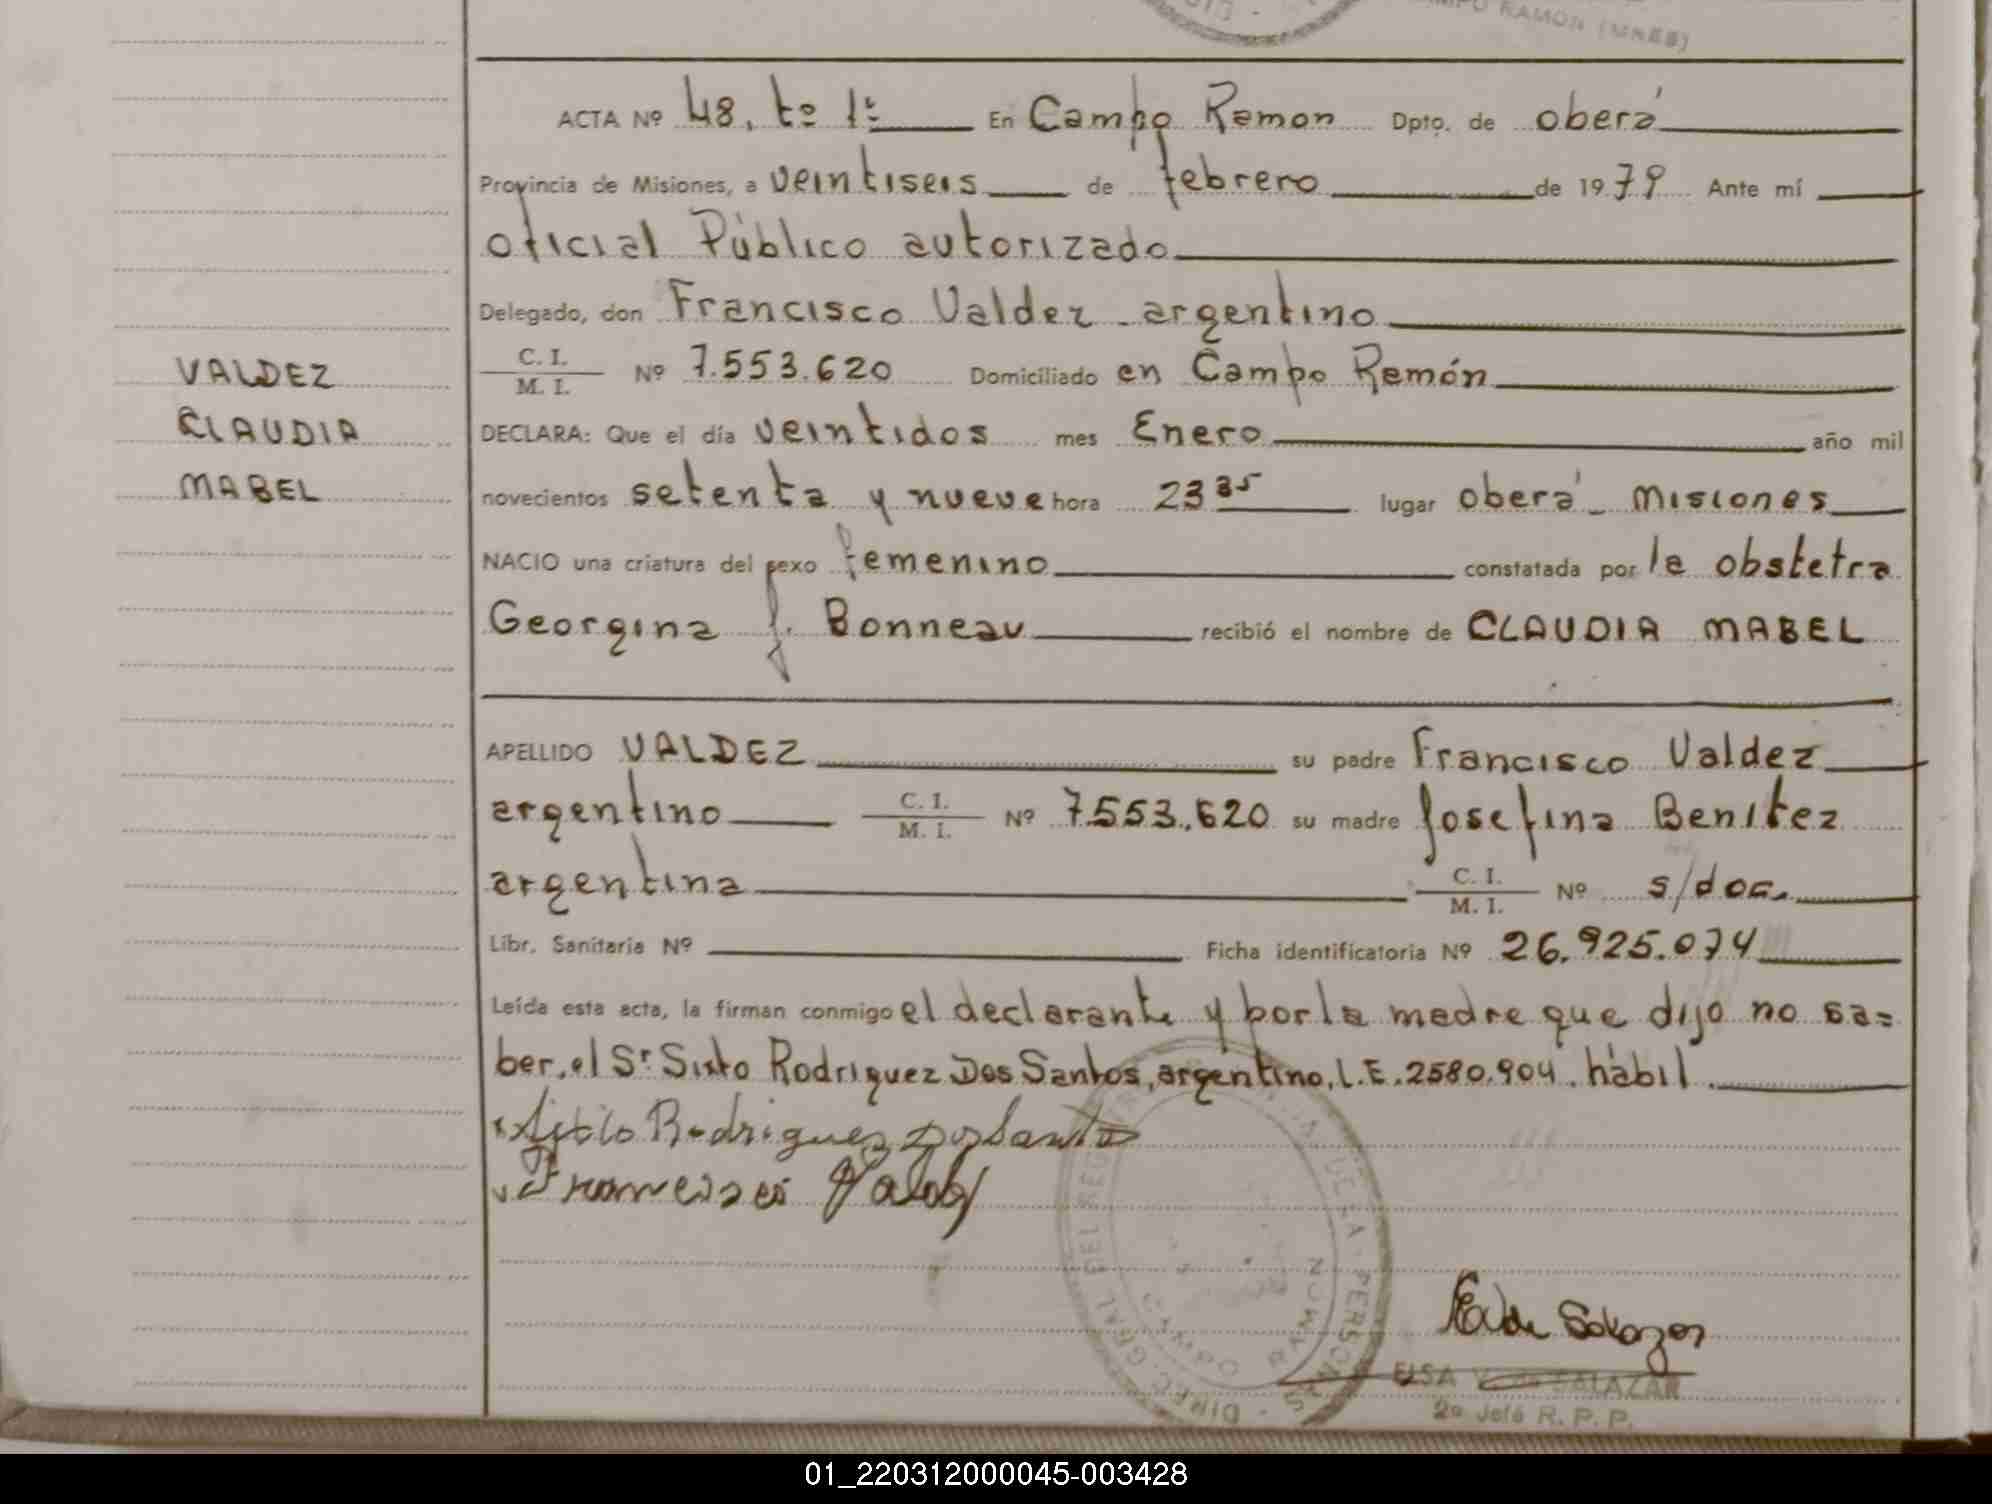 CAMPO RAMON (MNES)
ACTA Nº 48, tº 1º En Campo Ramon Dpto. de oberá
Provincia de Misiones, a veintiseis de febrero de 1979 Ante mí
oficial Público autorizado
Delegado, don Francisco Valdez - argentino
C. I. / M. I. Nº 7.553.620 Domiciliado en Campo Ramón
DECLARA: Que el día veintidos mes Enero año mil
novecientos setenta y nueve hora 23 35 lugar oberá - misiones
NACIO una criatura del sexo femenino constatada por la obstetra
Georgina J. Bonneau recibió el nombre de CLAUDIA MABEL
VALDEZ
CLAUDIA
MABEL
APELLIDO VALDEZ su padre Francisco Valdez
argentino C. I. / M. I. Nº 7.553.620 su madre Josefina Benitez
argentina C. I. / M. I. Nº s/doc.
Libr. Sanitaria Nº Ficha identificatoria Nº 26.925.074
Leída esta acta, la firman conmigo el declarante y por la madre que dijo no sa=
ber, el Sr Sixto Rodriguez Dos Santos, argentino, L.E. 2580.904. hábil
Rodrigues dos Santo
Valdez
CAMPO RAMON
Salazar
ELSA SALAZAR
2º Jefe R. P. P.
01_220312000045-003428